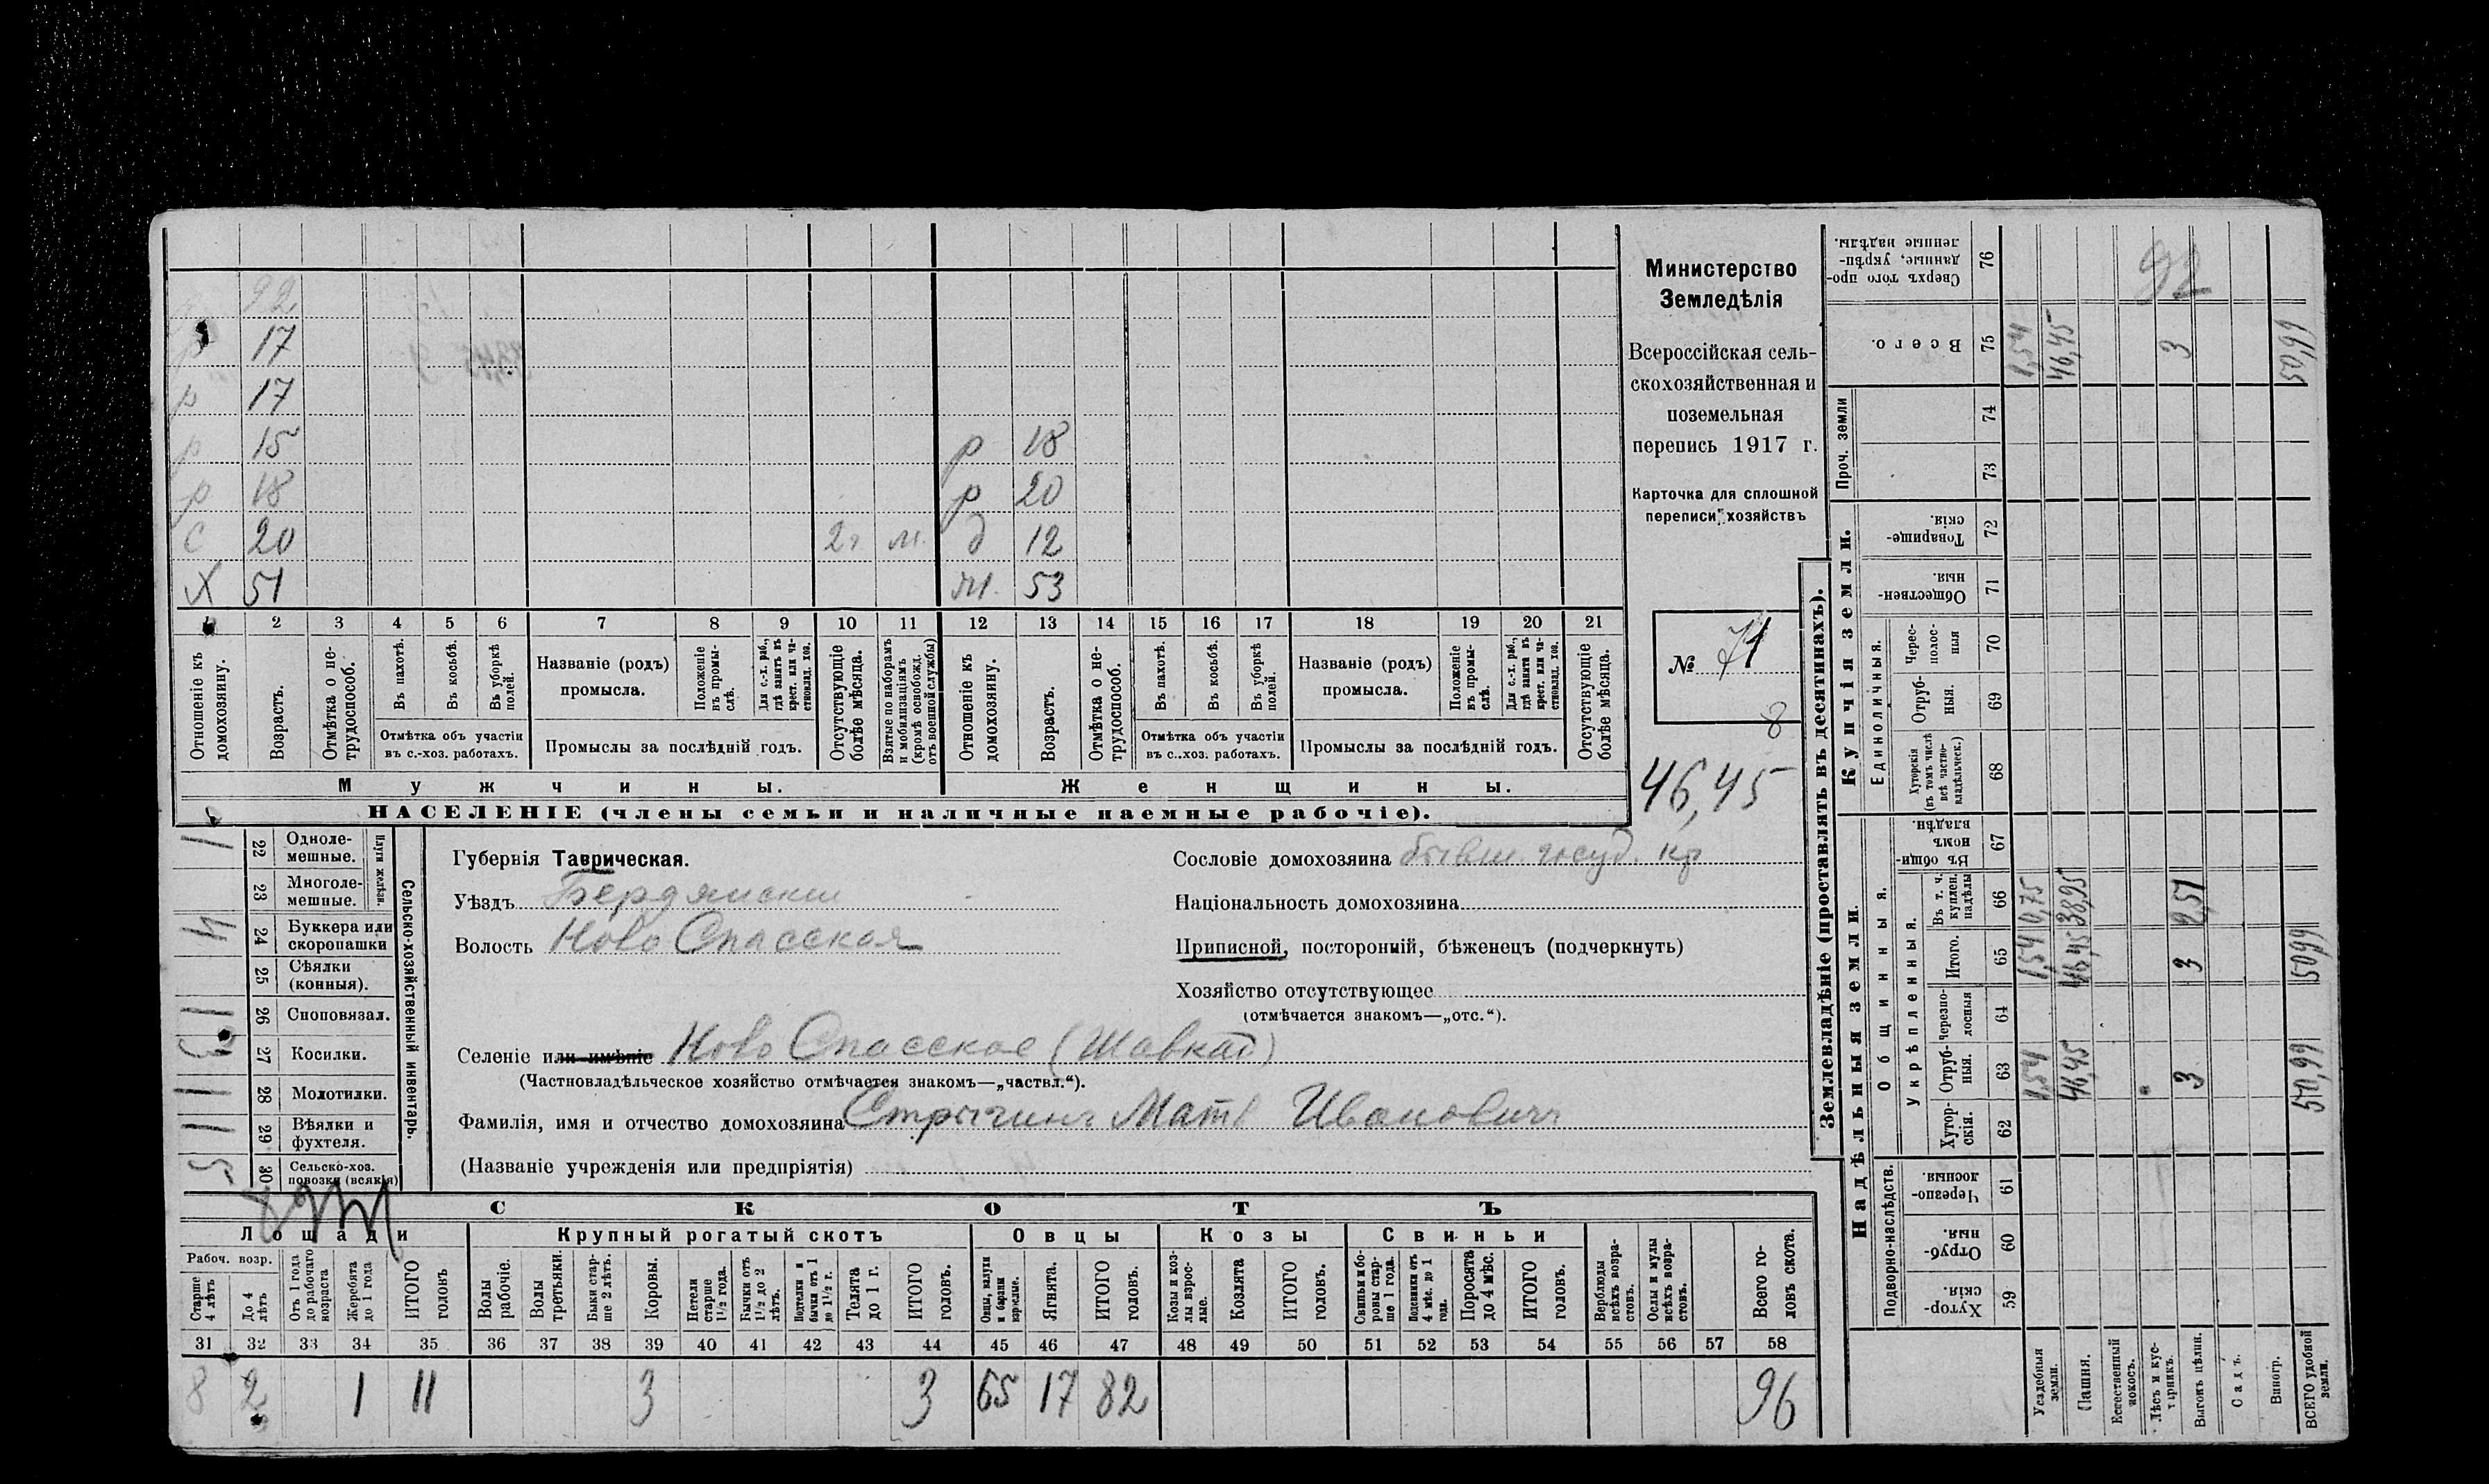 22
17
р 17
р 15 р 18
р 18 р 20
с 20 2 г м. д 12
X 51 м. 53
1 2 3 4 5 6 7 8 9 10 11 12 13 14 15 16 17 18 19 20 21
Отношеніе къ домохозяину.
Возрастъ.
Отмѣтка о не-трудоспособ.
Въ пахотѣ.
Въ косьбѣ.
Въ уборкѣ полей.
Отмѣтка объ участіи въ с.-хоз. работахъ.
Названіе (родъ) промысла.
Положеніе въ промы-слѣ.
Для с.-х. раб., гдѣ занятъ въ крест. или ча-стновлад. хоз.
Промыслы за послѣдній годъ.
Отсутствующіе болѣе мѣсяца.
Взятые по наборамъ и мобилизаціямъ (кромѣ освобожд. отъ военной службы)
Отношеніе къ домохозяину.
Возрастъ.
Отмѣтка о не-трудоспособ.
Въ пахотѣ.
Въ косьбѣ.
Въ уборкѣ полей.
Отмѣтка объ участіи въ с..хоз. работахъ.
Названіе (родъ) промысла.
Положеніе въ промы-слѣ.
Для с.-х. раб., гдѣ занята въ крест. или ча-стновлад. хоз.
Промыслы за послѣдній годъ.
Отсутствующіе болѣе мѣсяца.
Мужчины.
Женщины.
НАСЕЛЕНІЕ (члены семьи и наличные наемные рабочіе).
Министерство
Земледѣлія
Всероссійская сель-
скохозяйственная и
поземельная
перепись 1917 г.
Карточка для сплошной
переписи хозяйствъ
№ 71
8
46,45
Сельско-хозяйственный инвентарь.
Плуги желѣзн.
22 Одноле-мешные. 1
23 Многоле-мешные.
24 Буккера или скоропашки
25 Сѣялки (конныя).
26 Сноповязал. 1
27 Косилки.
28 Молотилки. 1
29 Вѣялки и фухтеля. 1
30 Сельско-хоз. повозки (всякія) 5
Губернія Таврическая.
Уѣздъ Бердянский
Волость Ново Спасская
Сословіе домохозяина бывш. госуд. кр
Національность домохозяина
Приписной, посторонній, бѣженецъ (подчеркнуть)
Хозяйство отсутствующее
(отмѣчается знакомъ—„отс.“).
Селеніе или имѣніе Ново Спасское (Шавкай)
(Частновладѣльческое хозяйство отмѣчается знакомъ—„частвл.“).
Фамилія, имя и отчество домохозяина Стрыгинъ Матв Ивановичъ
(Названіе учрежденія или предпріятія)
СКОТЪ
Лошади
Крупный рогатый скотъ
Овцы
Козы
Свиньи
Рабоч. возр.
Старше 4 лѣтъ
До 4 лѣтъ
Отъ 1 года до рабочаго возраста
Жеребята до 1 года
ИТОГО головъ
Волы рабочіе.
Волы третьяки.
Быки стар-ше 2 лѣтъ.
Коровы.
Нетели старше 1½ года.
Бычки отъ 1½ до 2 лѣтъ.
Подтелки и бычки отъ 1 до 1½ г.
Телята до 1 г.
ИТОГО головъ.
Овцы, валухи и бараны взрослые.
Ягнята.
ИТОГО головъ.
Козы и коз-лы взрос-лые.
Козлята
ИТОГО головъ.
Свиньи и бо-ровы стар-ше 1 года.
Подсвинки отъ 4 мѣс. до 1 года.
Поросята до 4 мѣс.
ИТОГО головъ.
Верблюды всѣхъ возра-стовъ.
Ослы и мулы всѣхъ возра-стовъ.
Всего го-ловъ скота.
31 32 33 34 35 36 37 38 39 40 41 42 43 44 45 46 47 48 49 50 51 52 53 54 55 56 57 58
8 2 1 11 3 3 65 17 82 96
Землевладѣніе (проставлять въ десятинахъ).
Надѣльныя земли.
Купчія земли.
Проч. земли
Подворно-наслѣдств.
Общинныя.
Укрѣпленныя.
Единоличныя.
59 Хутор-скія.
60 Отруб-ныя.
61 Черезпо-лосныя
62 Хутор-скія.
63 Отруб-ныя. 1,54 46,45 3 50,99
64 Черезпо-лосныя
65 Итого. 1,54 46,45 3 50,99
66 Въ т. ч. куплен. надѣлы 0,75 38,95 2,51
67 Въ общи-номъ владѣн.
68 Хуторскія (въ томъ числѣ всѣ частно-владѣльческ.)
69 Отруб-ныя.
70 Черес-полос-ныя
71 Обществен-ныя.
72 Товарище-скія.
73
74
75 Всего. 1,54 46,45 3 50,99
76 Сверхъ того про-данные, укрѣп-ленные надѣлы.
92
Усадебныя земли.
Пашня.
Естественный покосъ.
Лѣсъ и кус-тарникъ.
Выгонъ цѣлин.
Садъ.
Виногр.
ВСЕГО удобной земли.